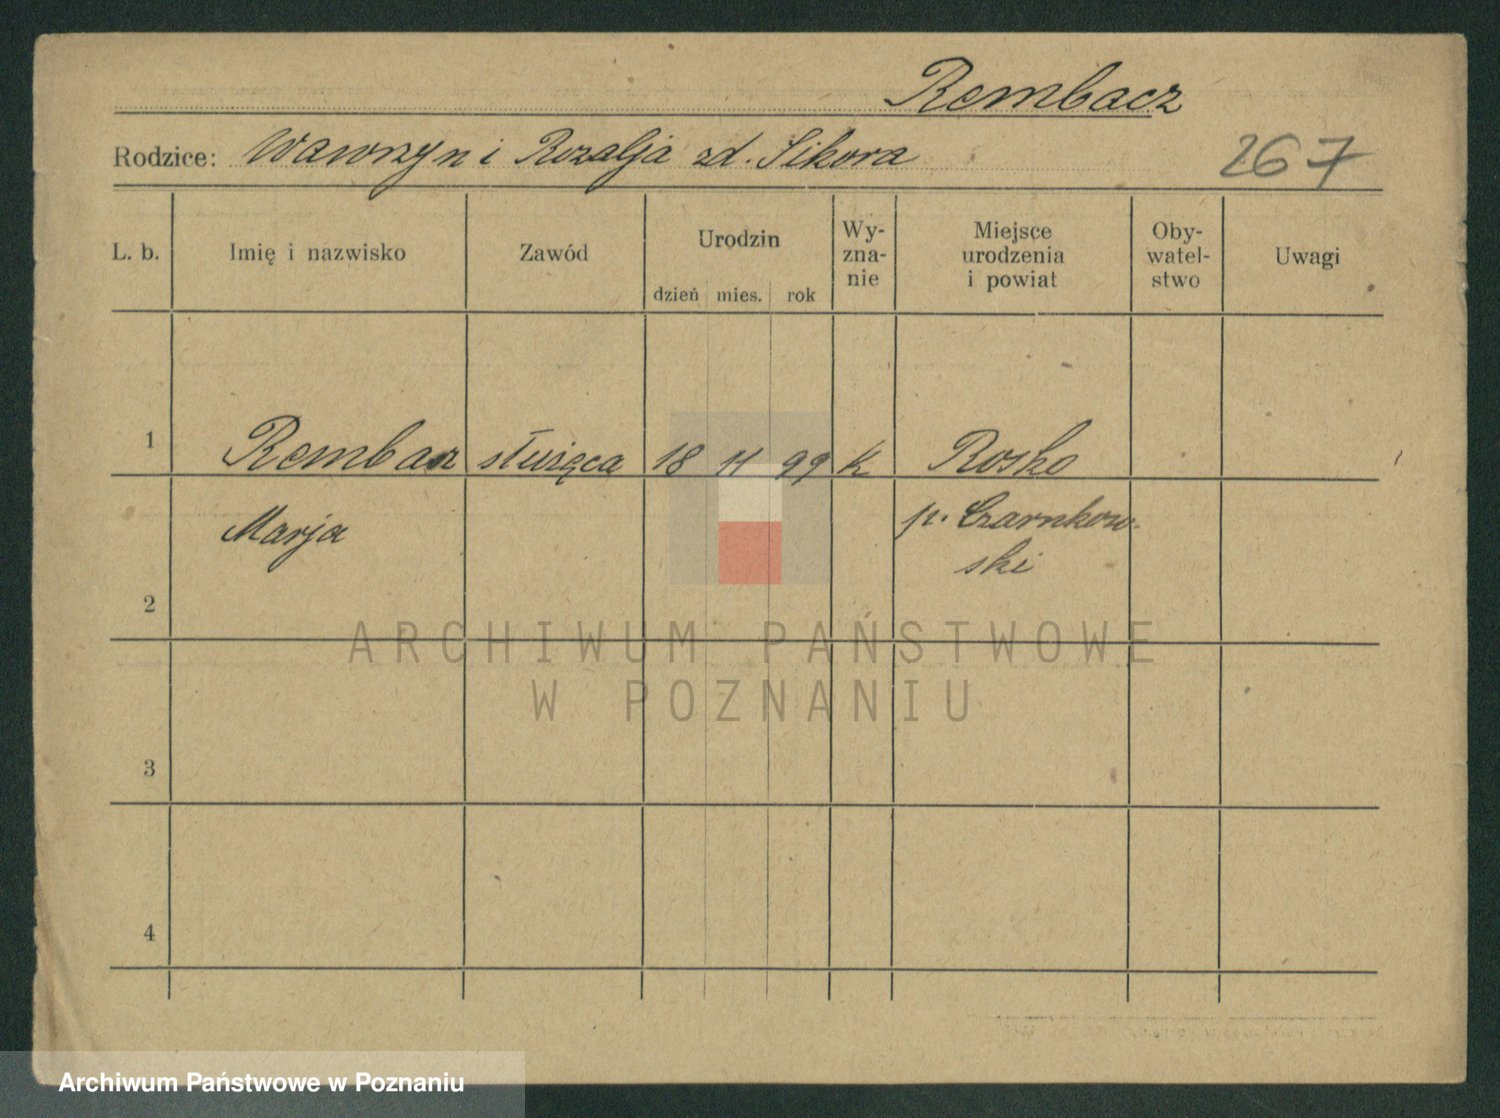 Rembacz
Rodzice: Wawrzyn i Rozalja zd. Sikora
267
L. b. Imię i nazwisko Zawód Urodzin Wy-zna-nie Miejsce urodzenia i powiat Oby-watel-stwo Uwagi
dzień mies. rok
1 Rembacz służąca 18 11 99 k Rosko
Marja p. Czarnkow-
ski
2
ARCHIWUM PAŃSTWOWE
W POZNANIU
3
4
Archiwum Państwowe w Poznaniu